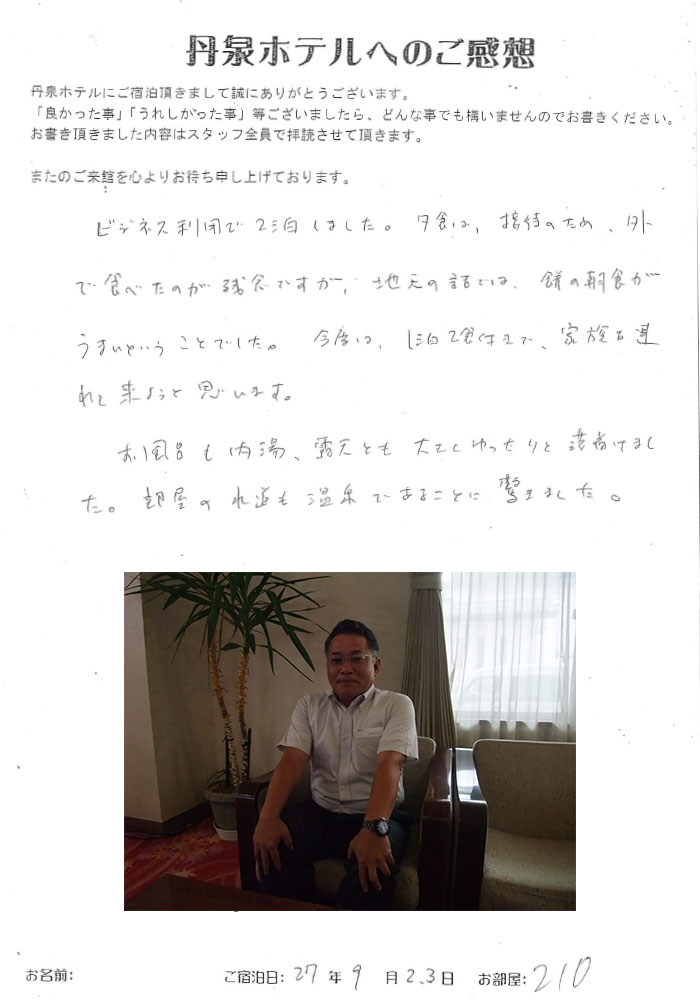 丹泉ホテルへのご感想
丹泉ホテルにご宿泊頂きまして誠にありがとうございます。
「良かった事」「うれしかった事」等ございましたら、どんな事でも構いませんのでお書きください。
お書き頂きました内容はスタッフ全員で拝読させて頂きます。
またのご来館を心よりお待ち申し上げております。
ビジネス利用で2泊しました。夕食は、接待のため、外
で食べたのが残念ですが、地元の話では、館の朝食が
うまいということでした。今度は、1泊2食付で、家族を連
れて来ようと思います。
お風呂も内湯、露天とも大きくゆったりと落着けまし
た。部屋の水道も温泉であることに驚きました。
お名前: ご宿泊日: 27年9月2.3日 お部屋: 210